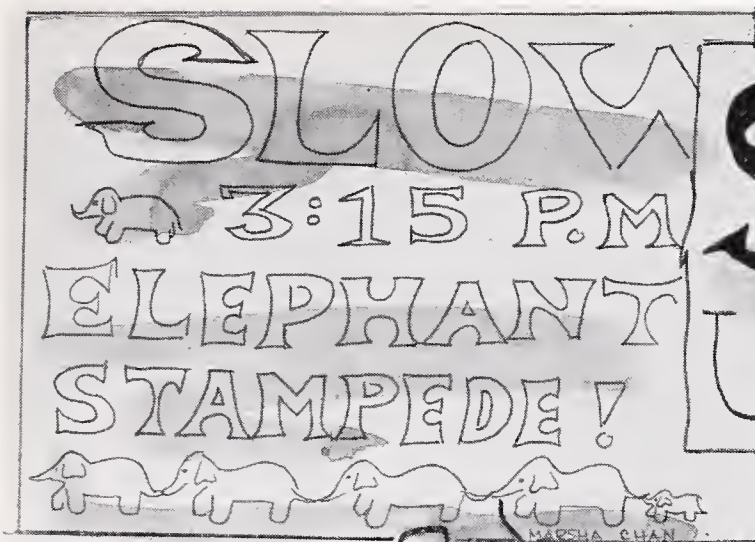 SLOW
3:15 P.M
ELEPHANT
STAMPEDE!
MARSHA CHAN